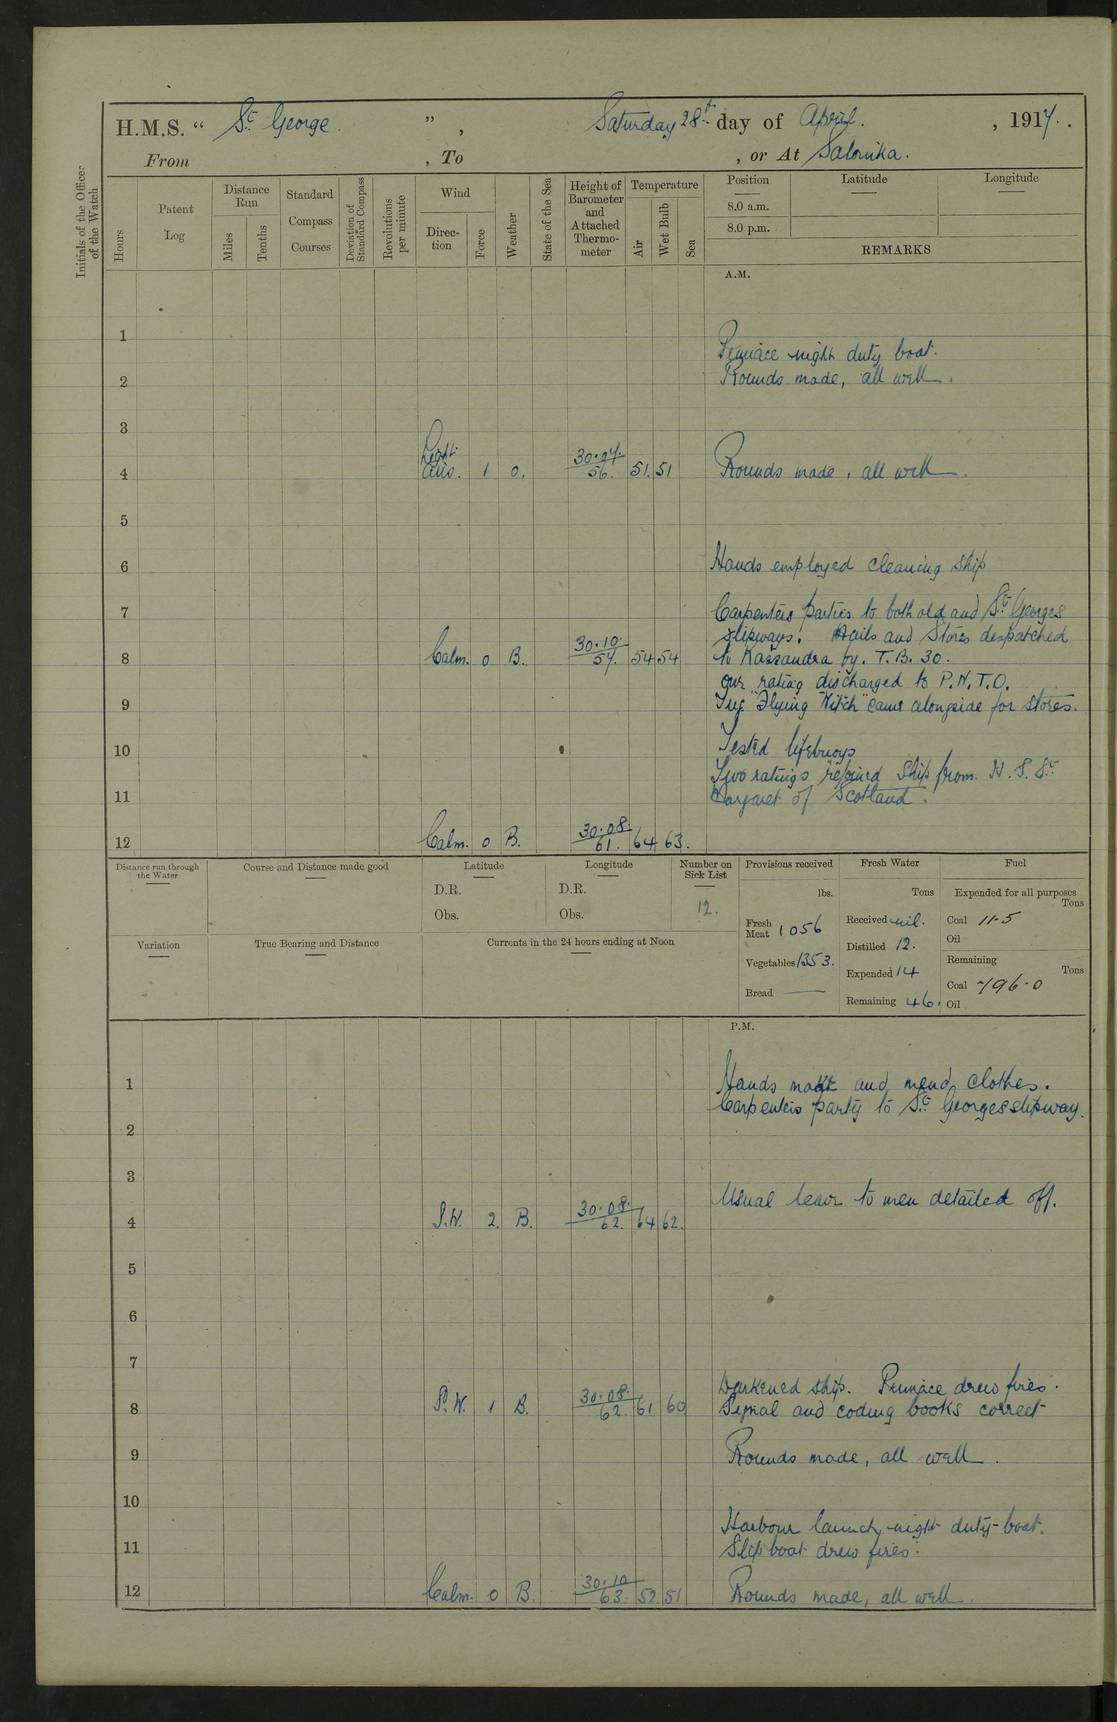 H.M.S. “ St. George ” , Saturday 28th day of April. , 1917.
From , To , or At Salonika.
Initials of the Officer of the Watch
Hours
Patent Log
Distance Run
Miles
Tenths
Standard Compass Courses
Deviation of Standard Compass
Revolutions per minute
Wind
Direction
Force
Weather
State of the Sea
Height of Barometer and Attached Thermometer
Temperature
Air
Wet Bulb
Sea
Position Latitude Longitude
8.0 a.m.
8.0 p.m.
REMARKS
A.M.
1
Pinnace night duty boat.
2 Rounds made, all well.
3
4 Light airs. 1 0. 30.07. 56. 51. 51 Rounds made, all well.
5
6 Hands employed cleaning ship
7 Carpenters parties to both old and St. Georges
slipways. Nails and Stores despatched
8 Calm. 0 B. 30.10. 57. 54 54 to Kassandra by. T.B. 30.
One rating discharged to P.N.T.O.
9 Tug "Flying Witch" came alongside for stores.
10 Tested lifebuoys
Two ratings rejoined ship from H.S. St.
11 Margaret of Scotland.
12 Calm. 0 B. 30.08. 61. 64 63.
Distance run through the Water
Course and Distance made good
Latitude
D.R.
Obs.
Longitude
D.R.
Obs.
Number on Sick List
12.
Variation
True Bearing and Distance
Currents in the 24 hours ending at Noon
Provisions received
lbs.
Fresh Meat 1056
Vegetables 1353.
Bread —
Fresh Water
Tons
Received nil.
Distilled 12.
Expended 14
Remaining 46.
Fuel
Expended for all purposes
Tons
Coal 11.5
Oil
Remaining
Tons
Coal 796.0
Oil
P.M.
1 Hands make and mend clothes.
Carpenters party to St. Georges slipway.
2
3
Usual leave to men detailed off.
4 S.W. 2. B. 30.08. 62. 64 62.
5
6
7
Darkened ship. Pinnace drew fires.
8 S.W. 1 B. 30.08. 62. 61 60 Signal and coding books correct
9 Rounds made, all well.
10
Harbour launch night duty boat.
11 Slip boat drew fires.
12 Calm. 0 B. 30.10 63 52. 51 Rounds made, all well.